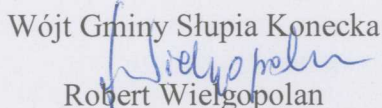 Wójt Gminy Słupia Konecka
Wielgopolan
Robert Wielgopolan